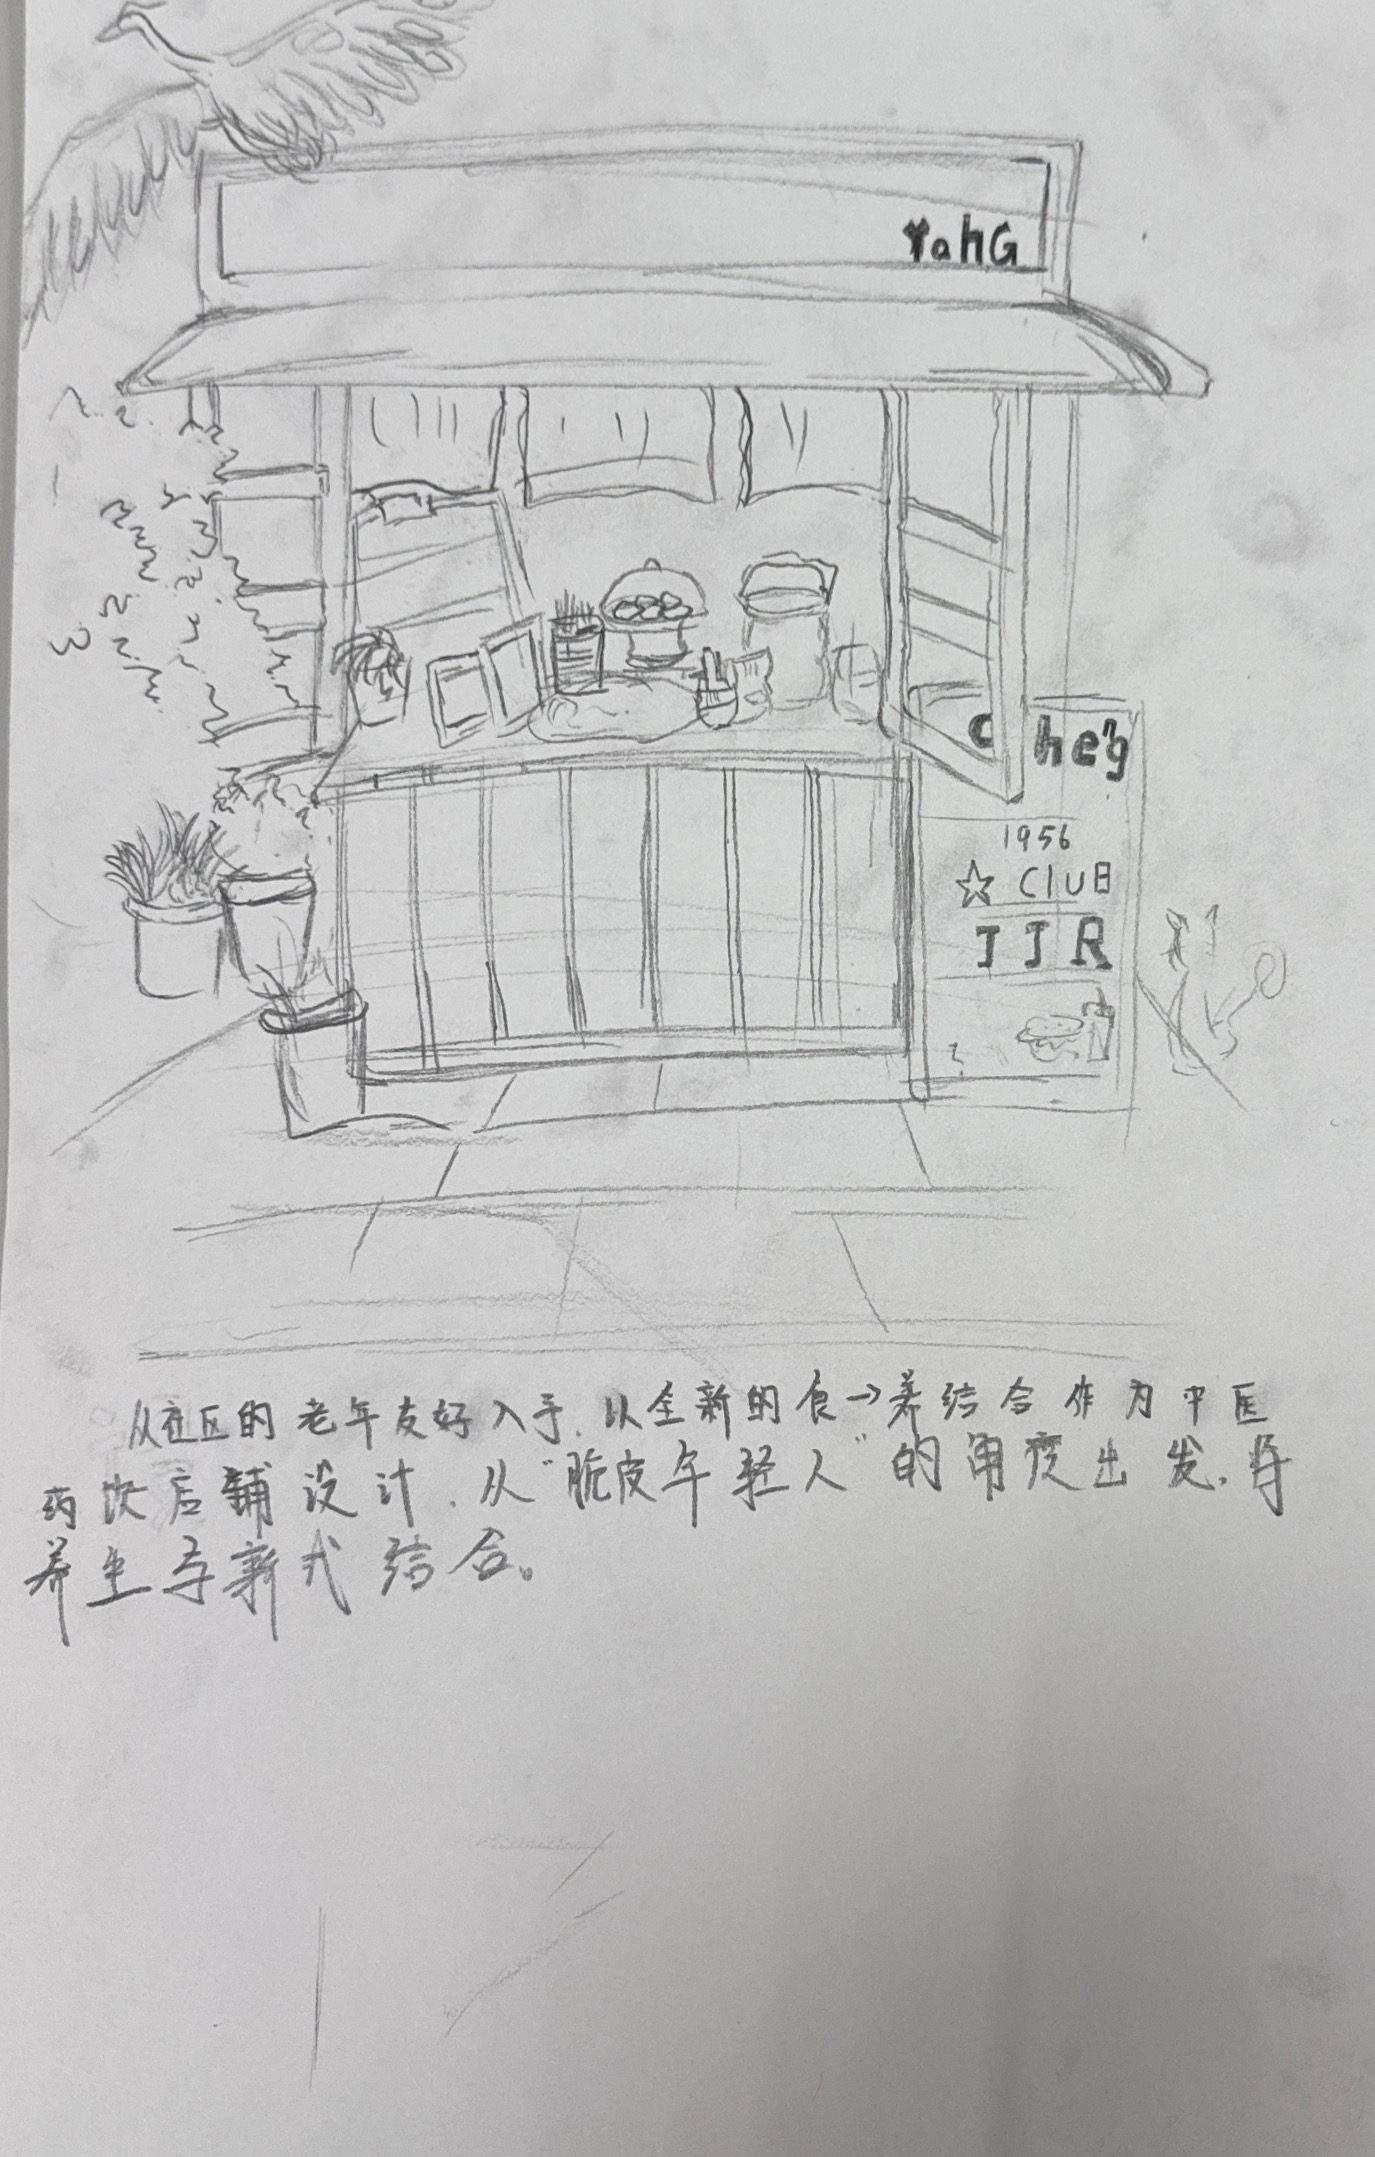 YahG
Che'g
1956
☆ CLUB
JJR
从社区的老年友好入手.以全新的食→养结合作为中医
药饮店铺设计.从“脆皮年轻人”的角度出发.将
养生与新式结合。